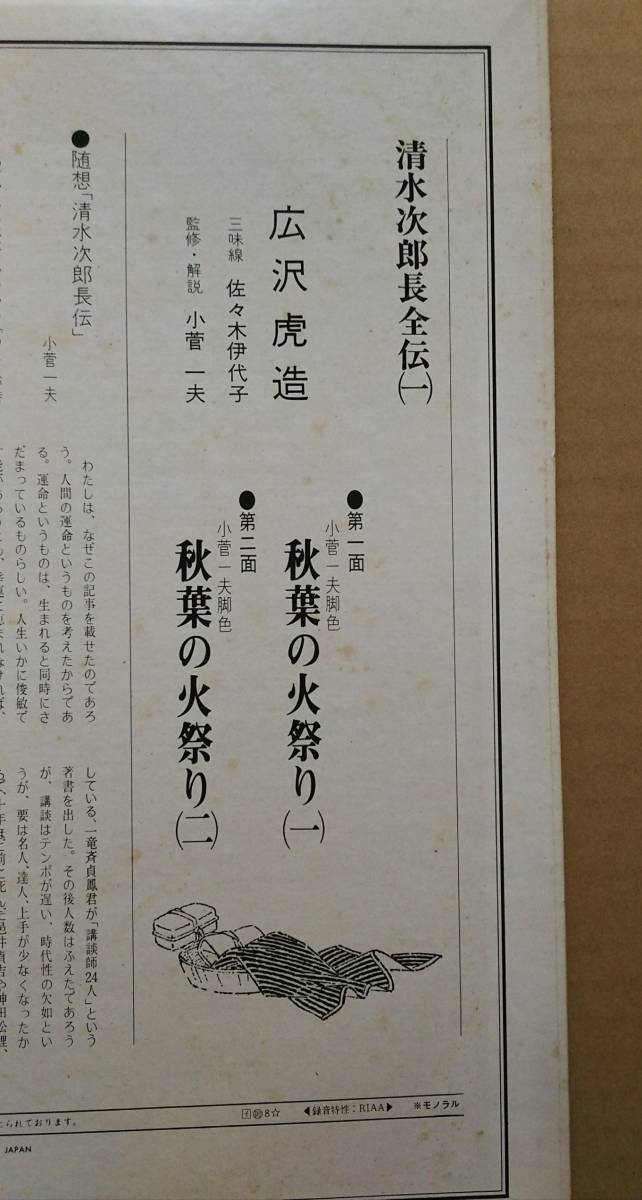 清水次郎長全伝(一)
広沢虎造
三味線 佐々木伊代子
監修・解説 小菅一夫
●第一面
小菅一夫脚色
秋葉の火祭り(一)
●第二面
小菅一夫脚色
秋葉の火祭り(二)
●随想「清水次郎長伝」
小菅一夫
わたしは、なぜこの記事を載せたのであろ
う。人間の運命というものを考えたからであ
る。運命というものは、生まれると同時にさ
だまっているものらしい。人生いかに俊敏で
している、一竜斉貞鳳君が「講談師24人」という
著書を出した。その後人数はふえたであろう
が、講談はテンポが遅い、時代性の欠如とい
うが、要は名人、達人、上手が少なくなったか
られております。
8☆
◀録音特性:RIAA▶
※モノラル
JAPAN